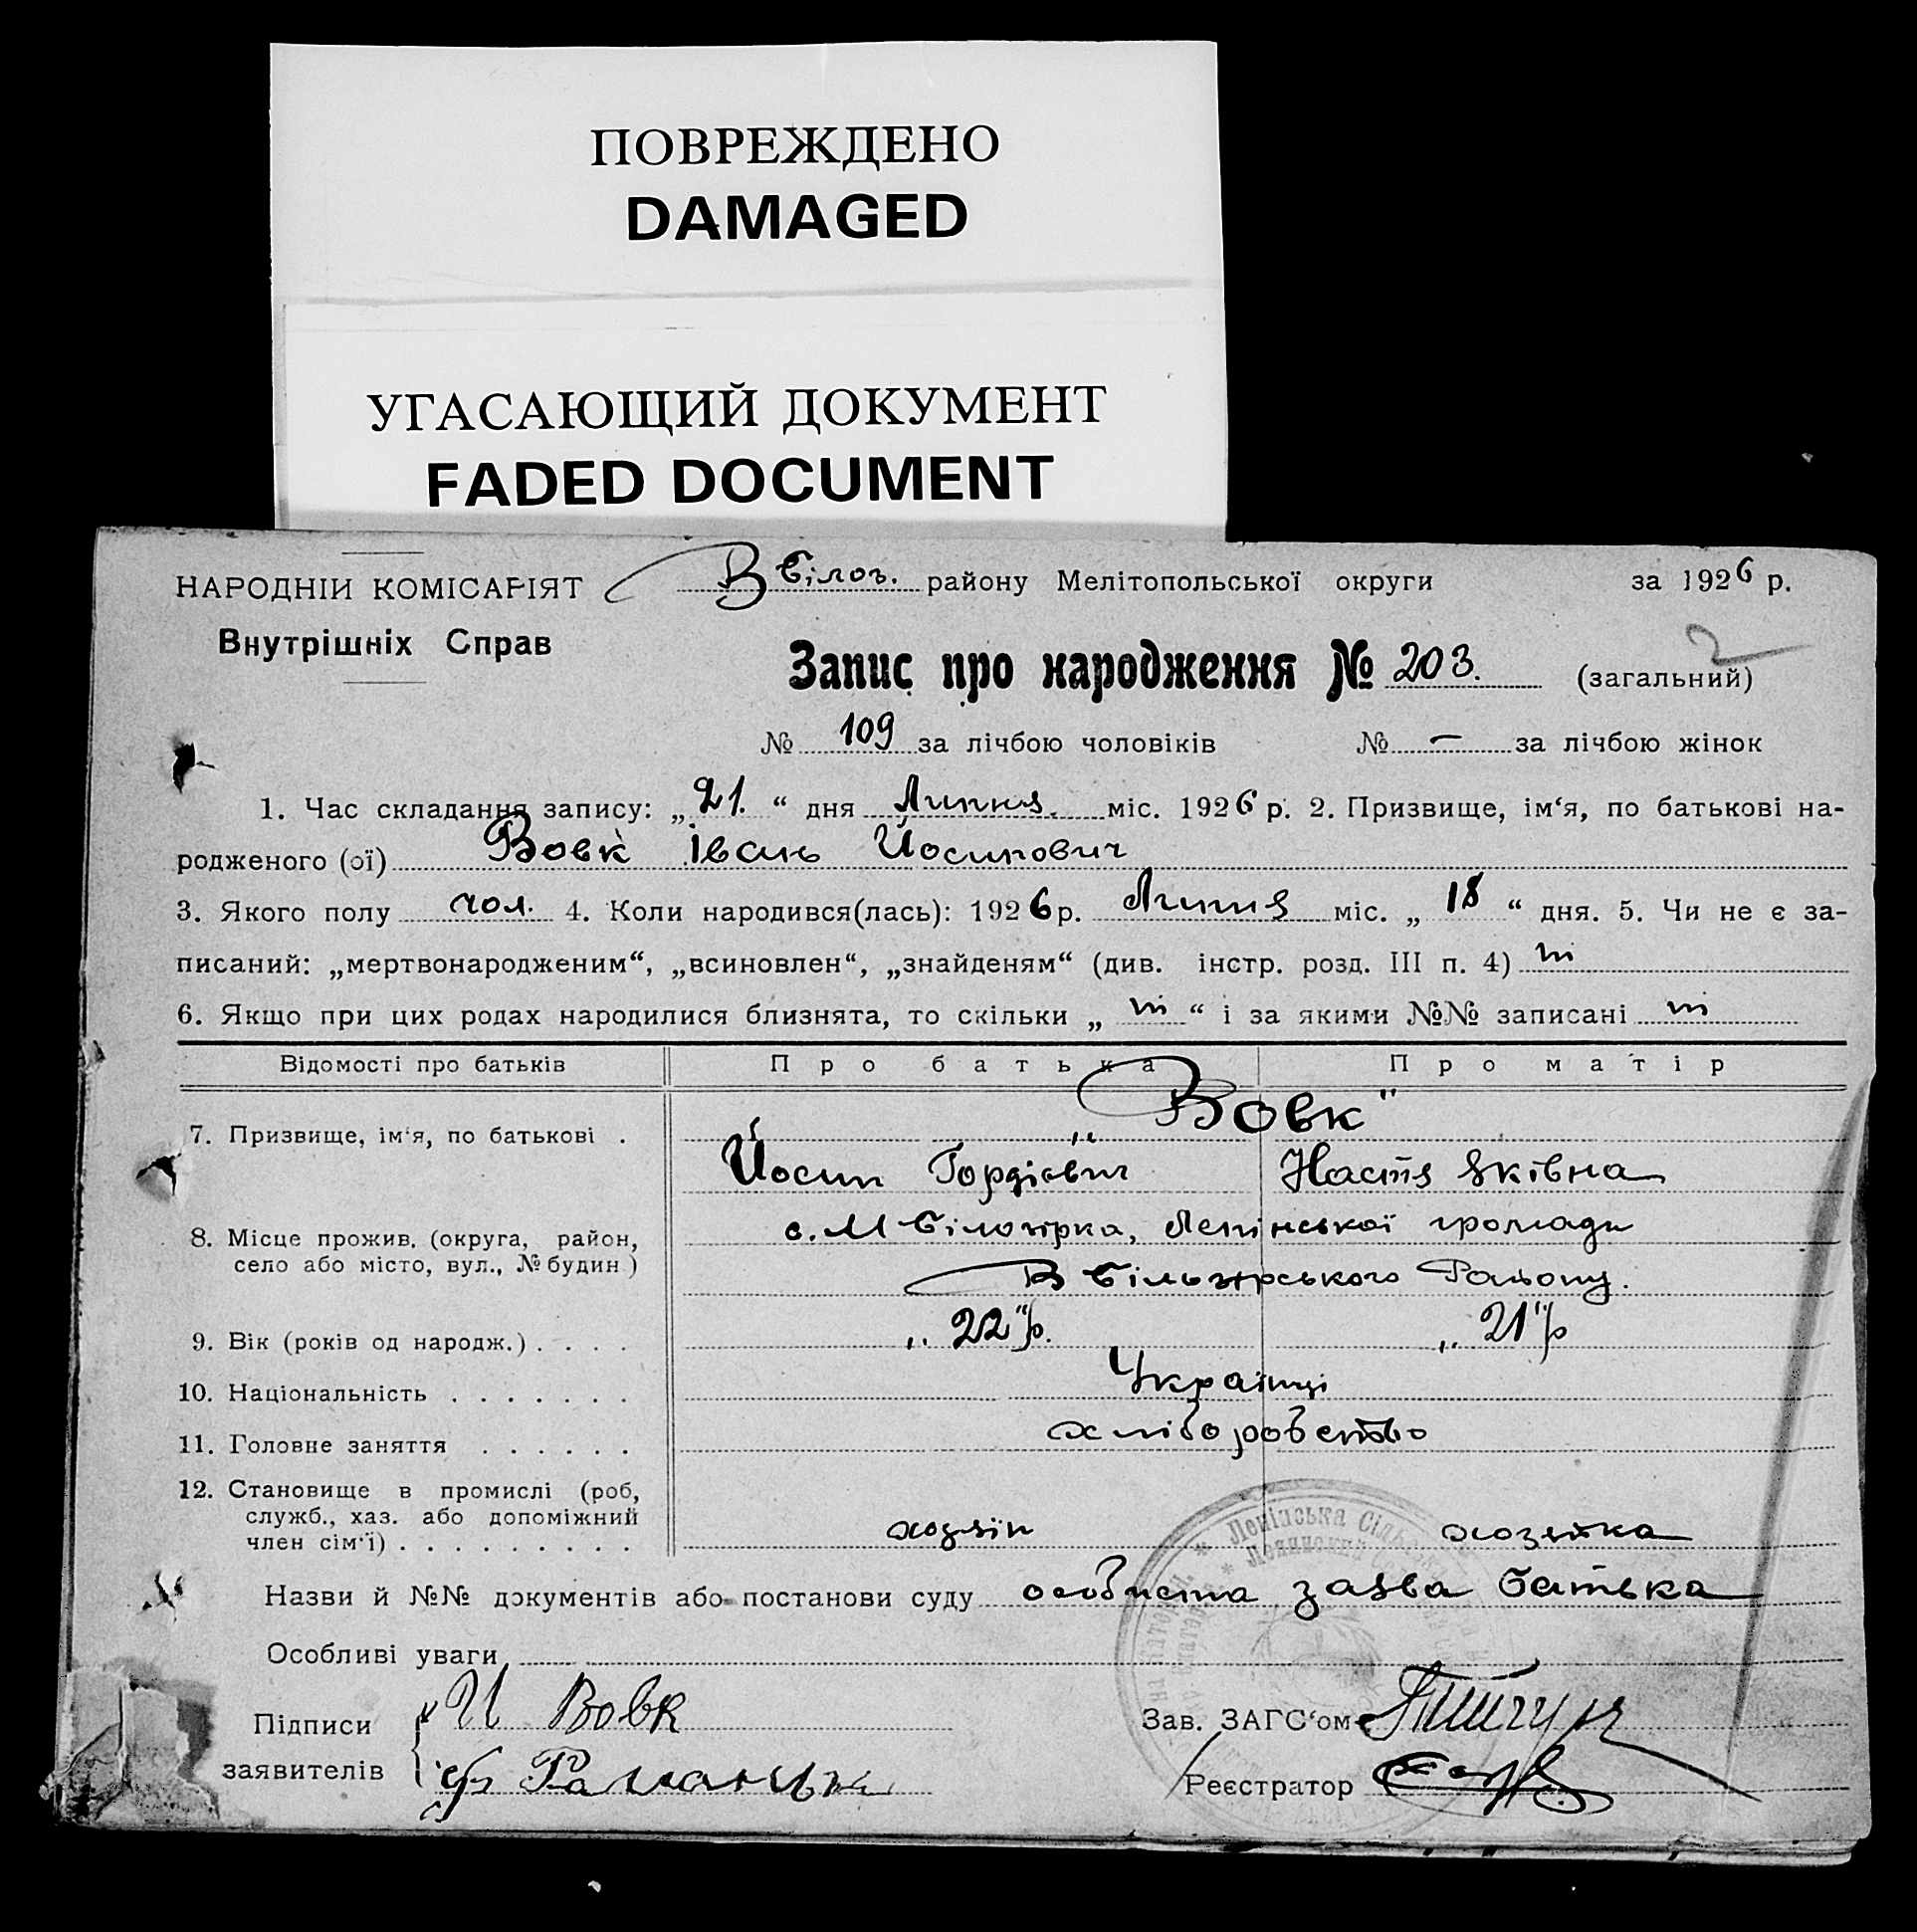 ПОВРЕЖДЕНО
DAMAGED
УГАСАЮЩИЙ ДОКУМЕНТ
FADED DOCUMENT
НАРОДНІЙ КОМІСАРІЯТ
Внутрішніх Справ
В Білоз. району Мелітопольської округи за 1926 р.
2
Запис про народження № 203. (загальний)
№ 109 за лічбою чоловіків № — за лічбою жінок
1. Час складання запису: „21.“ дня Липня. міс. 1926 р. 2. Призвище, ім‘я, по батькові на-
родженого (ої) Вовк Івань Йосипович
3. Якого полу чол. 4. Коли народився(лась): 1926 р. Липня міс. „18“ дня. 5. Чи не є за-
писаний: „мертвонародженим“, „всиновлен“, „знайденям“ (див. інстр. розд. III п. 4) ні
6. Якщо при цих родах народилися близнята, то скільки „ ні “ і за якими №№ записані ні
Відомості про батьків Про батька Про матір
7. Призвище, ім‘я, по батькові . „Вовк"
Йосип Гордієвич Настя Яківна
8. Місце прожив. (округа, район,
село або місто, вул., № будин) с. М Білозірка, Ленінської громади
В Білозірського Району.
9. Вік (років од народж.) . . . . „22" р. „21" р
10. Національність . . . . . . . Українці
11. Головне заняття . . . . . . хліборобство
12. Становище в промислі (роб,
служб., хаз. або допоміжний
член сім‘ї) . . . . . . . . . хозяїн хозяйка
Назви й №№ документів або постанови суду особиста заява батька
Особливі уваги
Підписи заявителів И Вовк
Зав. ЗАГС‘ом
Реєстратор
Ленінська